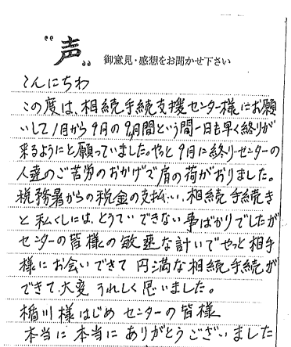 "声" 御意見・感想をお聞かせ下さい
こんにちわ
この度は、相続手続支援センター様にお願
いして1月から9月の9月間という間一日も早く終りが
来るようにと願っていました。やっと9月に終り・センターの
人達のご苦労のおかげで肩の荷がおりました。
税務署からの税金の支払い、相続手続き
と私くしには、とうていできない事ばかりでしたが
センターの皆様の敏速な計いでやっと相手
様にお会いできて円満な相続手続が
できて大変うれしく思いました。
稲川様はじめセンターの皆様
本当に本当にありがとうございました